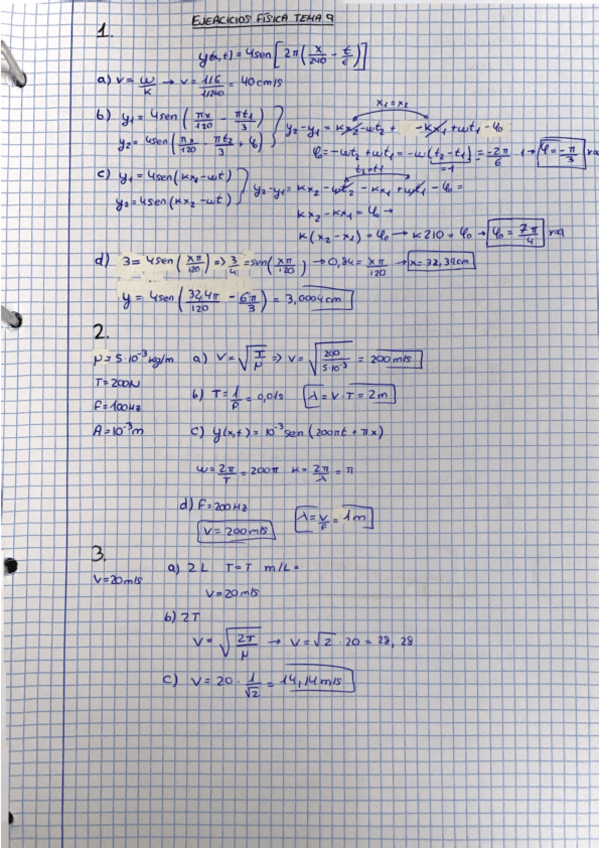 EJERCICIOS FÍSICA TEMA 9
1.
y(x,t) = 4sen[2π(x/240 - t/6)]
a) v = ω/k → v = 1/6 / 1/240 = 40cm/s
x₁=x₂
b) y₁ = 4sen(πx/120 - πt₁/3)
y₂ = 4sen(πx/120 - πt₂/3 + φ₀) } y₂-y₁ = kx₂-ωt₂ + -kx₁+ωt₁-φ₀
φ₀ = -ωt₂+ωt₁ = -ω(t₂-t₁) = -2π/6 · 1 → φ = -π/3 rad
=1
t₂=t₁
c) y₁ = 4sen(kx₁-ωt)
y₂ = 4sen(kx₂-ωt) } y₂-y₁ = kx₂-ωt₂-kx₁+ωt₁-φ₀ =
kx₂-kx₁ = φ₀ →
k(x₂-x₁) = φ₀ → k210 = φ₀ → φ₀ = 7π/4 rad
d) 3 = 4sen(xπ/120) => 3/4 = sen(xπ/120) → 0,84 = xπ/120 → x = 32,39cm
y = 4sen(32,4π/120 - 6π/3) = 3,0004cm
2.
μ = 5·10⁻³kg/m a) v = √T/μ => v = √200/5·10⁻³ = 200m/s
T = 200N
b) T = 1/f = 0,01s λ = v·T = 2m
f = 100Hz
A = 10⁻³m c) y(x,t) = 10⁻³sen(200πt + πx)
ω = 2π/T = 200π k = 2π/λ = π
d) f = 200Hz
v = 200m/s λ = v/f = 1m
3.
v = 20m/s a) 2L T = T m/L =
v = 20m/s
b) 2T
v = √2T/μ → v = √2 · 20 = 28,28
c) v = 20 · 1/√2 = 14,14m/s